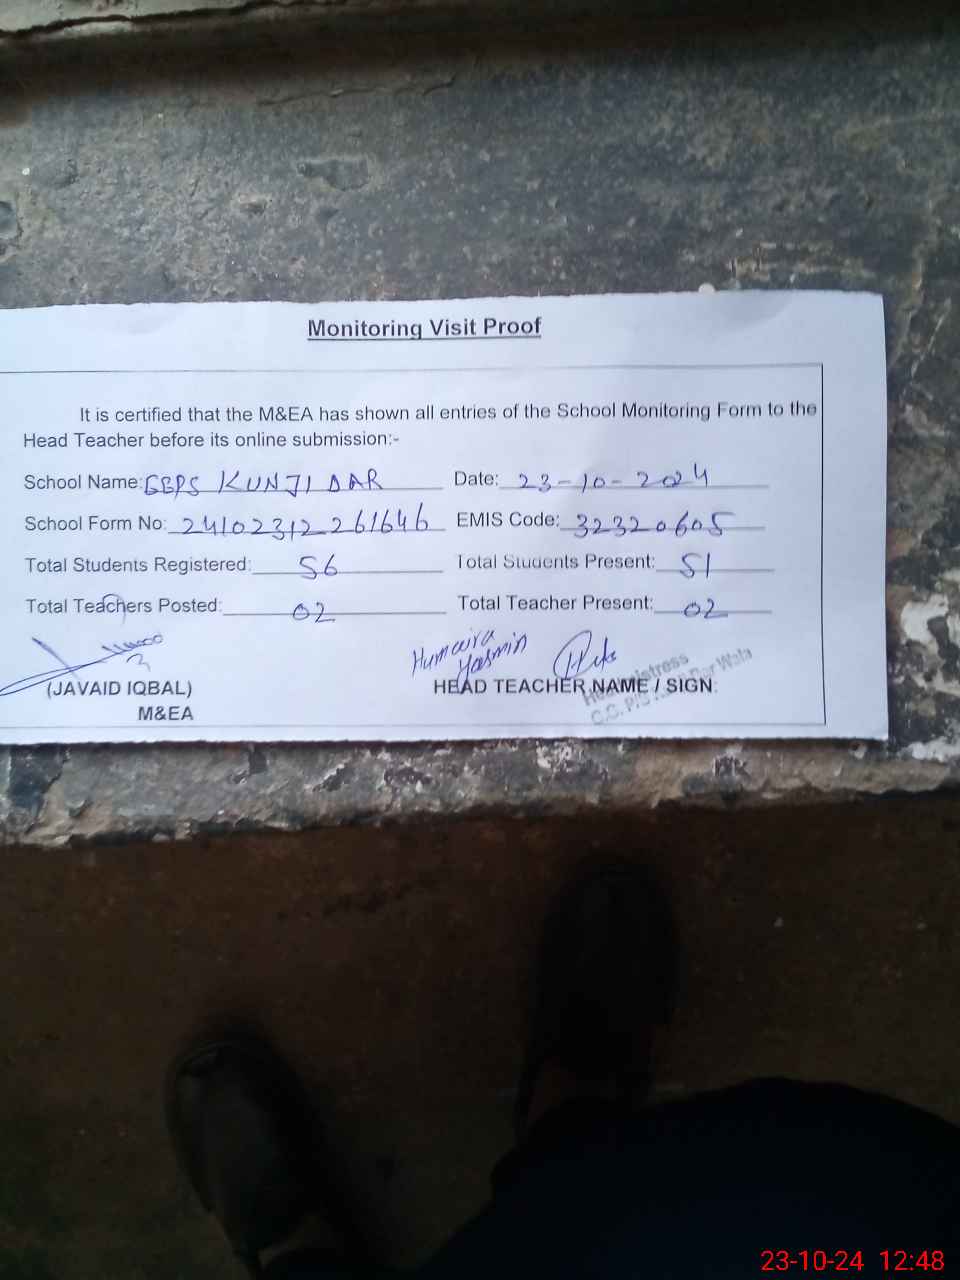 Monitoring Visit Proof
It is certified that the M&EA has shown all entries of the School Monitoring Form to the
Head Teacher before its online submission:-
School Name: GBPS KUNJI DAR Date: 23-10-2024
School Form No: 24102312261646 EMIS Code: 32320605
Total Students Registered: 56 Total Students Present: 51
Total Teachers Posted: 02 Total Teacher Present: 02
Humaira
Yasmin
(JAVAID IQBAL) HEAD TEACHER NAME / SIGN:
M&EA
Headmistress
C.C. P/S Dar Wala
23-10-24 12:48